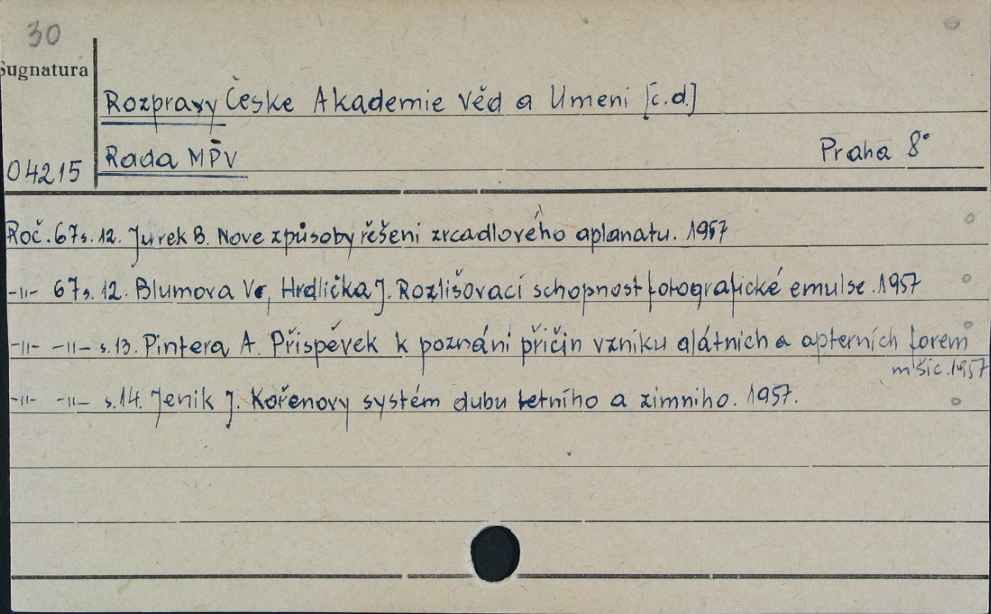 30
Sugnatura
Rozpravy Česke Akademie Věd a Umeni [c.d.]
04215 Rada MPV Praha 8°
Roč. 67s. 12. Jurek B. Nove způsoby řěšeni zrcadlového aplanatu. 1957
-11- 67s. 12. Blumova Vr, Hrdlička J. Rozlišovaci schopnost fotografické emulse. 1957
-11- -11- s.13. Pintera A. Přispěvek k poznáni přičin vzniku alátnich a apterních forem
mšic. 1957
-11- -11- s.14. Jenik J. Kořenovy systém dubu letního a zimniho. 1957.